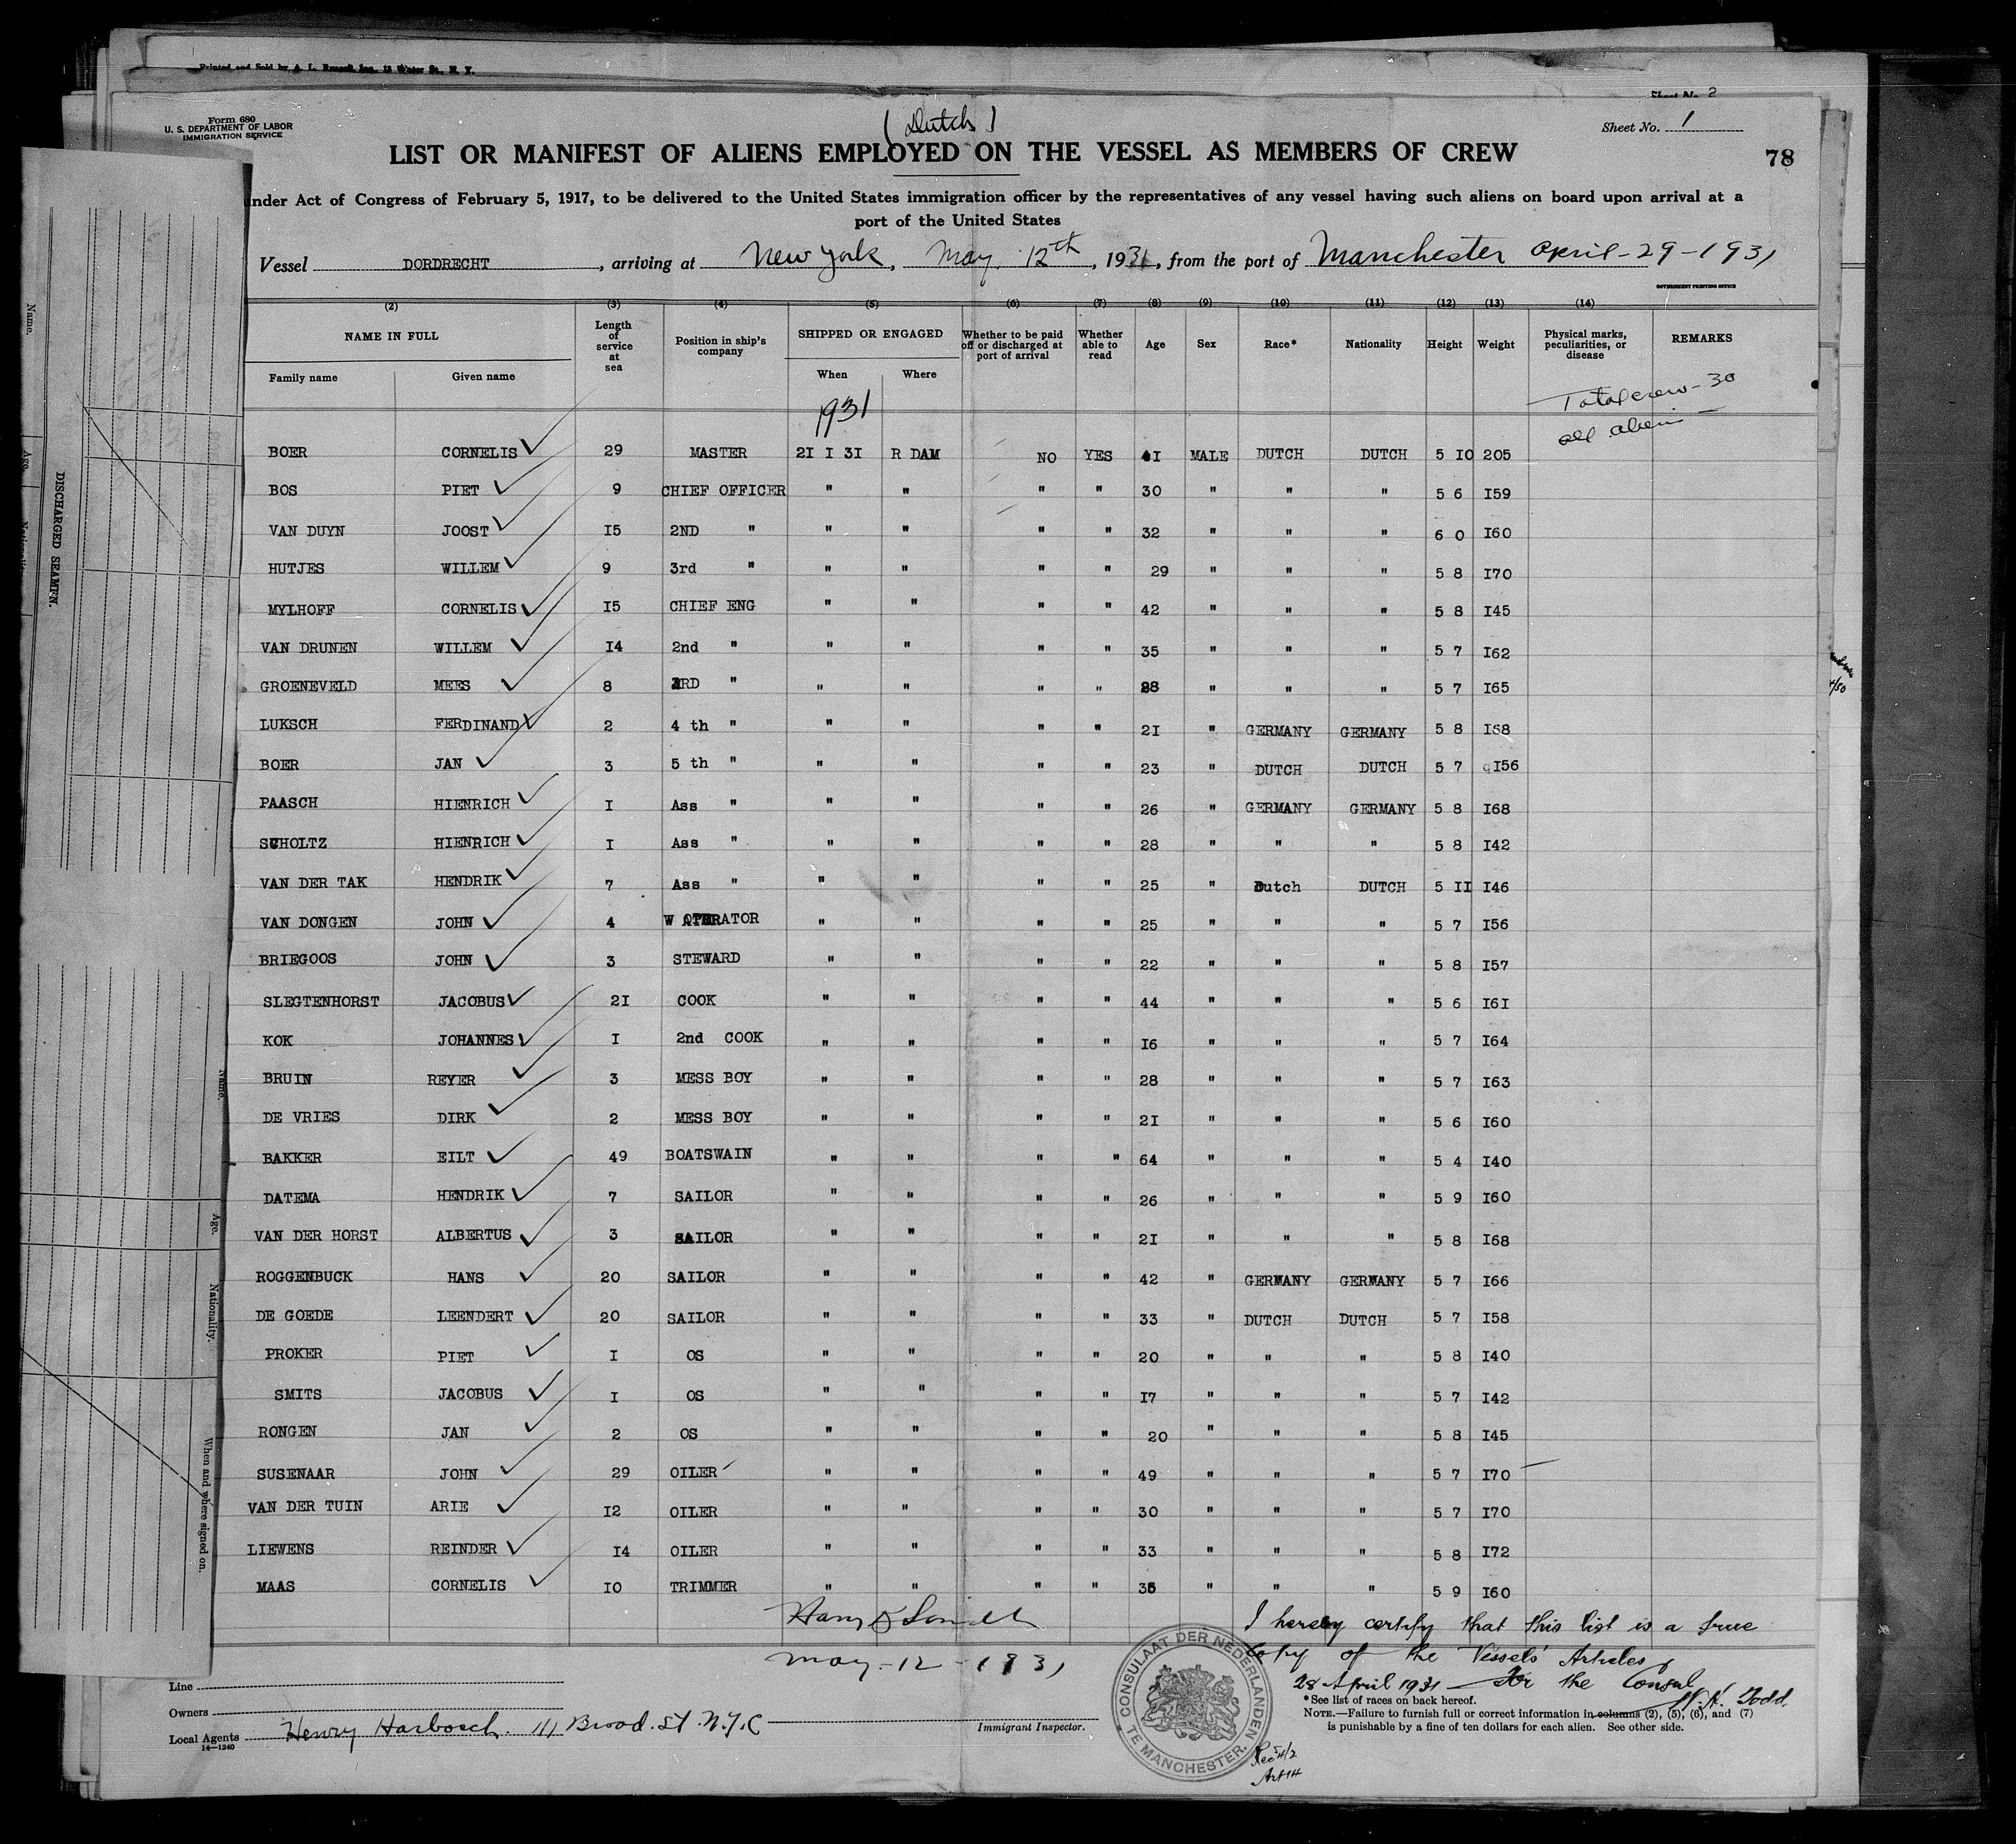 Printed and Sold by A. L. Russell, Inc., 13 Water St., N. Y.
Sheet No. 2
Form 680
U. S. DEPARTMENT OF LABOR
IMMIGRATION SERVICE
(Dutch)
Sheet No. 1
LIST OR MANIFEST OF ALIENS EMPLOYED ON THE VESSEL AS MEMBERS OF CREW
78
under Act of Congress of February 5, 1917, to be delivered to the United States immigration officer by the representatives of any vessel having such aliens on board upon arrival at a
port of the United States
Vessel DORDRECHT, arriving at New York, May 12th, 1931, from the port of Manchester April-29-1931
GOVERNMENT PRINTING OFFICE
(2) (3) (4) (5) (6) (7) (8) (9) (10) (11) (12) (13) (14)
NAME IN FULL Length of service at sea Position in ship's company SHIPPED OR ENGAGED Whether to be paid off or discharged at port of arrival Whether able to read Age Sex Race* Nationality Height Weight Physical marks, peculiarities, or disease REMARKS
Family name Given name When Where
1931
Total crew-30
all aliens
BOER CORNELIS 29 MASTER 2I I 3I R DAM NO YES 4I MALE DUTCH DUTCH 5 IO 205
BOS PIET 9 CHIEF OFFICER " " " " 30 " " " 5 6 I59
VAN DUYN JOOST I5 2ND " " " " " 32 " " " 6 0 I60
HUTJES WILLEM 9 3rd " " " " " 29 " " " 5 8 I70
MYLHOFF CORNELIS I5 CHIEF ENG " " " " 42 " " " 5 8 I45
VAN DRUNEN WILLEM I4 2nd " " " " " 35 " " " 5 7 I62
GROENEVELD MEES 8 3RD " " " " " 28 " " " 5 7 I65
LUKSCH FERDINAND 2 4 th " " " " " 2I " GERMANY GERMANY 5 8 I68
BOER JAN 3 5 th " " " " " 23 " DUTCH DUTCH 5 7 I56
PAASCH HIENRICH I Ass " " " " " 26 " GERMANY GERMANY 5 8 I68
SCHOLTZ HIENRICH I Ass " " " " " 28 " " " 5 8 I42
VAN DER TAK HENDRIK 7 Ass " " " " " 25 " Dutch DUTCH 5 II I46
VAN DONGEN JOHN 4 W OPERATOR " " " " 25 " " " 5 7 I56
BRIEGOOS JOHN 3 STEWARD " " " " 22 " " " 5 8 I57
SLEGTENHORST JACOBUS 2I COOK " " " " 44 " " " 5 6 I6I
KOK JOHANNES I 2nd COOK " " " " I6 " " " 5 7 I64
BRUIN REYER 3 MESS BOY " " " " 28 " " " 5 7 I63
DE VRIES DIRK 2 MESS BOY " " " " 2I " " " 5 6 I60
BAKKER EILT 49 BOATSWAIN " " " " 64 " " " 5 4 I40
DATEMA HENDRIK 7 SAILOR " " " " 26 " " " 5 9 I60
VAN DER HORST ALBERTUS 3 SAILOR " " " " 2I " " " 5 8 I68
ROGGENBUCK HANS 20 SAILOR " " " " 42 " GERMANY GERMANY 5 7 I66
DE GOEDE LEENDERT 20 SAILOR " " " " 33 " DUTCH DUTCH 5 7 I58
PROKER PIET I OS " " " " 20 " " " 5 8 I40
SMITS JACOBUS I OS " " " " I7 " " " 5 7 I42
RONGEN JAN 2 OS " " " " 20 " " " 5 8 I45
SUSENAAR JOHN 29 OILER " " " " 49 " " " 5 7 I70
VAN DER TUIN ARIE I2 OILER " " " " 30 " " " 5 7 I70
LIEWENS REINDER I4 OILER " " " " 33 " " " 5 8 I72
MAAS CORNELIS IO TRIMMER " " " " 35 " " " 5 9 I60
I hereby certify that this list is a true
Copy of the Vessels' Articles
May-12-1931
28 April 1931 For the Consul
Line
*See list of races on back hereof.
Owners
NOTE.—Failure to furnish full or correct information in columns (2), (5), (6), and (7)
is punishable by a fine of ten dollars for each alien. See other side.
Local Agents Henry Harbosch. 111 Broad. St. N.Y.C
14—1240
Immigrant Inspector.
CONSULAAT DER NEDERLANDEN TE MANCHESTER.
DISCHARGED SEAMEN.
Name.
Age.
Nationality.
When and where signed on.